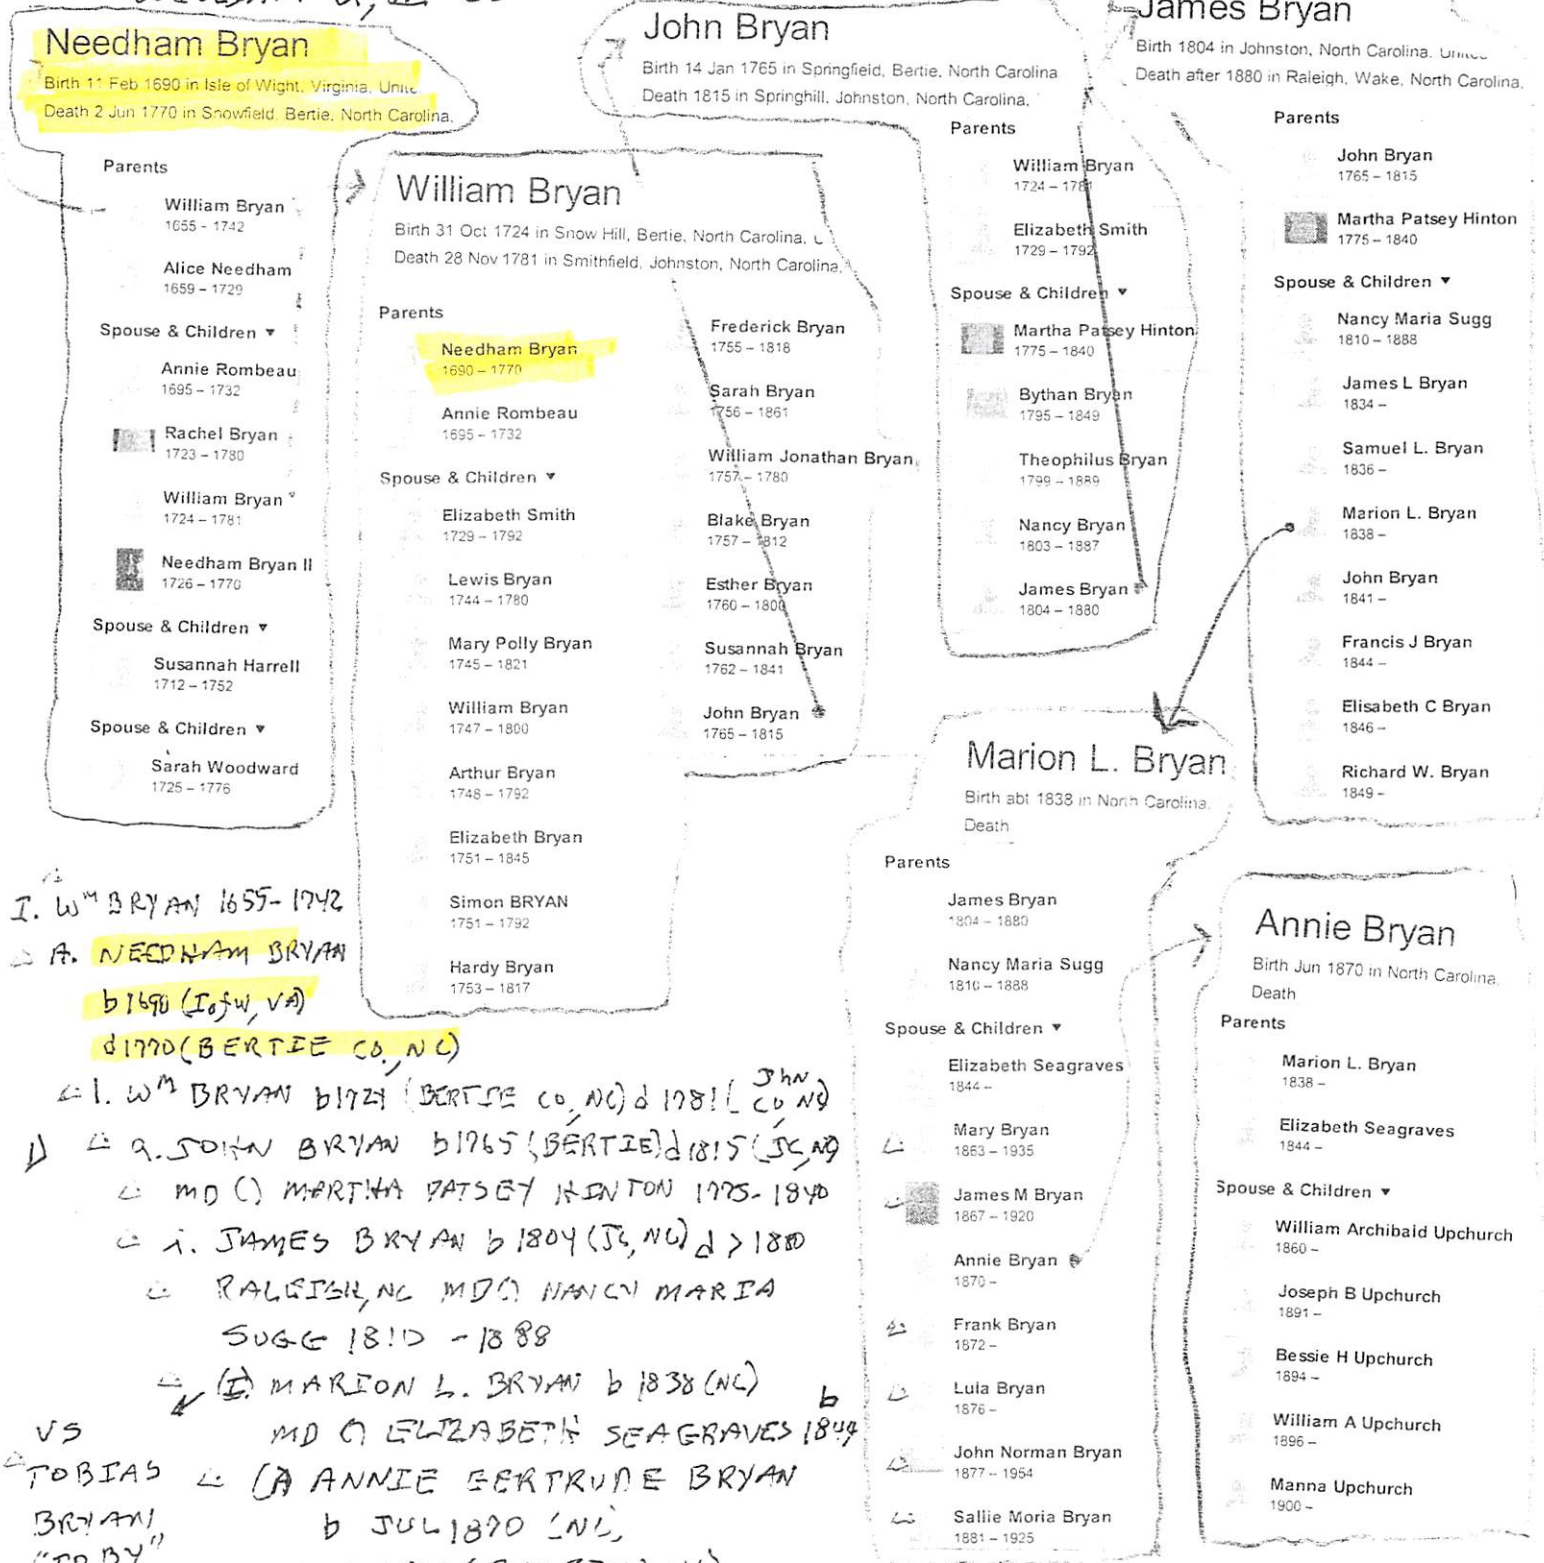 Needham Bryan
Birth 11 Feb 1690 in Isle of Wight, Virginia,
Death 2 Jun 1770 in Snowfield, Bertie, North Carolina,
Parents
William Bryan
1655 – 1742
Alice Needham
1659 – 1729
Spouse & Children ▼
Annie Rombeau
1695 – 1732
Rachel Bryan
1723 – 1780
William Bryan
1724 – 1781
Needham Bryan II
1726 – 1770
Spouse & Children ▼
Susannah Harrell
1712 – 1752
Spouse & Children ▼
Sarah Woodward
1725 – 1776
William Bryan
Birth 31 Oct 1724 in Snow Hill, Bertie, North Carolina,
Death 28 Nov 1781 in Smithfield, Johnston, North Carolina,
Parents
Needham Bryan
1690 – 1770
Annie Rombeau
1695 – 1732
Spouse & Children ▼
Elizabeth Smith
1729 – 1792
Lewis Bryan
1744 – 1780
Mary Polly Bryan
1745 – 1821
William Bryan
1747 – 1800
Arthur Bryan
1748 – 1792
Elizabeth Bryan
1751 – 1845
Simon BRYAN
1751 – 1792
Hardy Bryan
1753 – 1817
Frederick Bryan
1755 – 1818
Sarah Bryan
1756 – 1861
William Jonathan Bryan
1757 – 1780
Blake Bryan
1757 – 1812
Esther Bryan
1760 – 1800
Susannah Bryan
1762 – 1841
John Bryan
1765 – 1815
John Bryan
Birth 14 Jan 1765 in Springfield, Bertie, North Carolina
Death 1815 in Springhill, Johnston, North Carolina,
Parents
William Bryan
1724 – 1781
Elizabeth Smith
1729 – 1792
Spouse & Children ▼
Martha Patsey Hinton
1775 – 1840
Bythan Bryan
1795 – 1849
Theophilus Bryan
1799 – 1889
Nancy Bryan
1803 – 1887
James Bryan
1804 – 1880
James Bryan
Birth 1804 in Johnston, North Carolina,
Death after 1880 in Raleigh, Wake, North Carolina,
Parents
John Bryan
1765 – 1815
Martha Patsey Hinton
1775 – 1840
Spouse & Children ▼
Nancy Maria Sugg
1810 – 1888
James L Bryan
1834 –
Samuel L. Bryan
1836 –
Marion L. Bryan
1838 –
John Bryan
1841 –
Francis J Bryan
1844 –
Elisabeth C Bryan
1846 –
Richard W. Bryan
1849 –
Marion L. Bryan
Birth abt 1838 in North Carolina,
Death
Parents
James Bryan
1804 – 1880
Nancy Maria Sugg
1810 – 1888
Spouse & Children ▼
Elizabeth Seagraves
1844 –
Mary Bryan
1863 – 1935
James M Bryan
1867 – 1920
Annie Bryan
1870 –
Frank Bryan
1872 –
Lula Bryan
1876 –
John Norman Bryan
1877 – 1954
Sallie Moria Bryan
1881 – 1925
Annie Bryan
Birth Jun 1870 in North Carolina,
Death
Parents
Marion L. Bryan
1838 –
Elizabeth Seagraves
1844 –
Spouse & Children ▼
William Archibald Upchurch
1860 –
Joseph B Upchurch
1891 –
Bessie H Upchurch
1894 –
William A Upchurch
1896 –
Manna Upchurch
1900 –
I. Wm BRYAN 1655-1742
A. NEEDHAM BRYAN
b1690 (I of W, VA)
d1770 (BERTIE CO, NC)
1. Wm BRYAN b1724 (BERTIE CO, NC) d 1781 (JhN CO NC)
a. JOHN BRYAN b1765 (BERTIE) d1815 (JC, NC)
MD () MARTHA PATSEY HINTON 1775-1840
i. JAMES BRYAN b 1804 (JC, NC) d > 1880
RALEIGH, NC MD () NANCY MARIA
SUGG 1810 - 1888
(I) MARION L. BRYAN b 1838 (NC)
MD () ELIZABETH SEAGRAVES b 1844
(A) ANNIE GERTRUDE BRYAN
b JUL 1870 (NC,
VS
TOBIAS
BRYAN,
"TOBY"